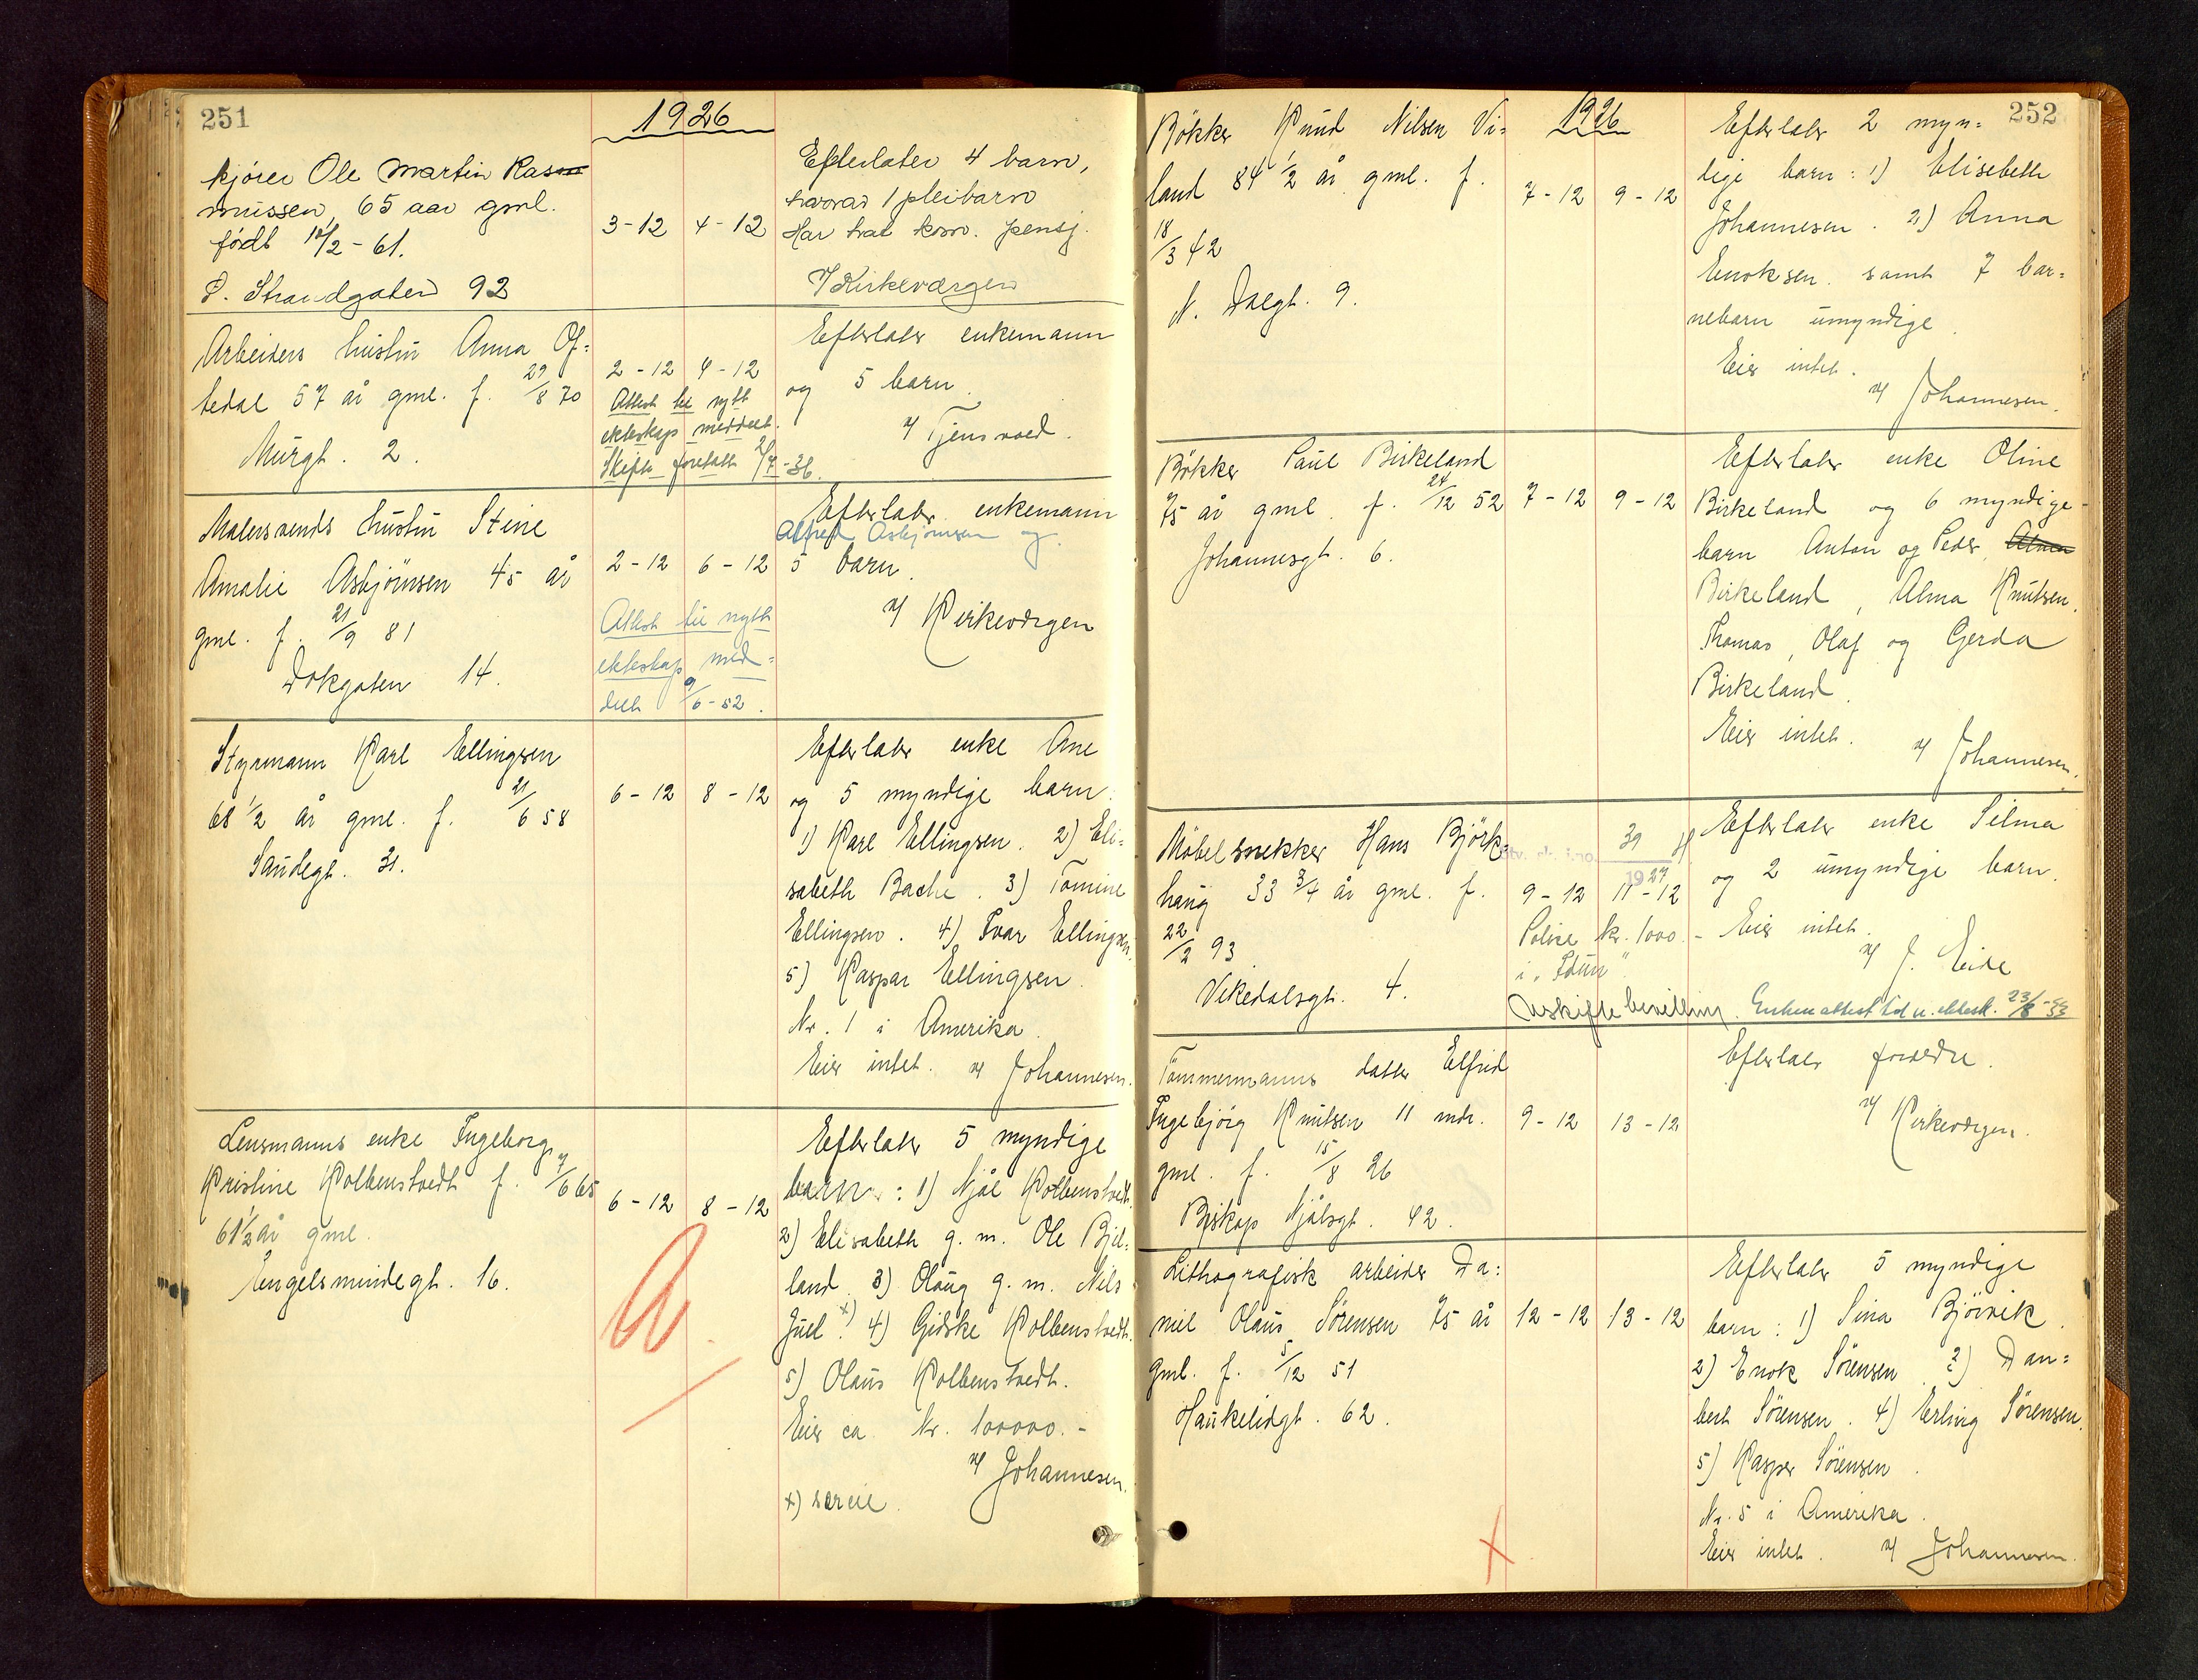 251
1926
kjører Ole Martin Ras
mussen, 65 aar gml.
født 12/2-61.
S. Strandgaten 92
3-12 4-12
Efterlater 4 barn,
hvorav 1 pleibarn
Har hat kom. pensj.
v/ Kirkevergen
Arbeiders hustru Anna Of=
tedal 57 år gml. f. 29/8 70
Murgt. 2.
2-12 4-12
Attest til nytt
ekteskap meddelt.
Skifte foretatt 2/7-36.
Efterlater enkemann
og 5 barn.
v/ Tjensvold.
Malersvends hustru Stine
Amalie Asbjörnsen 45 år
gml. f. 21/9 81
Dokgaten 14.
2-12 6-12
Attest til nytt
ekteskap med=
delt 9/6-52.
Efterlater enkemann
Alfred Asbjörnsen og
5 barn.
v/ Kirkevergen
Styrmann Karl Ellingsen
68 1/2 år gml. f. 21/6 58
Saudegt. 31.
6-12 8-12
Efterlater enke Ane
og 5 myndige barn.
1) Karl Ellingsen. 2) Eli=
sabeth Bache. 3) Tomine
Ellingsen. 4) Ivar Ellingsen.
5) Kaspar Ellingsen.
Nr. 1 i Amerika.
Eier intet. v/ Johannesen.
Lensmanns enke Ingeborg
Kristine Kolbenstvedt f. 7/6 65
61 1/2 år gml.
Engelsmindegt. 16.
6-12 8-12
Efterlater 5 myndige
barn: 1) Njål Kolbenstvedt.
2) Elisabeth g. m. Ole Bjel=
land. 3) Olaug g. m. Nils
Juel. x) 4) Gidske Kolbenstvedt.
5) Olaus Kolbenstvedt.
Eier ca kr. 100000.-
v/ Johannesen.
x) særeie.
252
1926
Bökker Knud Nilsen Vi=
land 84 1/2 år gml. f.
18/3 42
N. Dalgt. 9.
7-12 9-12
Efterlater 2 myn=
dige barn: 1) Elisebeth
Johannesen. 2) Anna
Enoksen. samt 7 bar=
nebarn umyndige.
Eier intet.
v/ Johannesen.
Bökker Paul Birkeland
75 år gml. f. 24/12 52
Johannesgt. 6.
7-12 9-12
Efterlater enke Oline
Birkeland og 6 myndige
barn Anton og Peder, Alma
Birkeland, Alma Knutsen.
Thomas, Olaf og Gerda
Birkeland.
Eier intet. v/ Johannesen.
Möbelsnekker Hans Björk=
haug 33 3/4 år gml. f.
22/2 93
Vikedalsgt. 4.
39
1927
9-12 11-12
Police kr. 1000.-
i „Idun".
Uskiftebevilling. Enken attest til n. ektesk. 23/8-33
Efterlater enke Selma
og 2 umyndige barn.
Eier intet.
v/ J. Eide
Tömmermanns datter Elfrid
Ingebjörg Knutsen 11 mdr.
gml. f. 15/8 26
Biskop Njålsgt. 42.
9-12 13-12
Efterlater foreldre.
v/ Kirkevergen.
Lithografisk arbeider Da=
niel Olaus Sörensen 75 år
gml. f. 5/12 51
Haukelidgt. 62.
12-12 13-12
Efterlater 5 myndige
barn: 1) Sina Bjöivik.
2) Enok Sörensen. 3) Dan=
bert Sörensen. 4) Erling Sörensen.
5) Kasper Sörensen.
Nr. 5 i Amerika.
Eier intet. v/ Johannesen.